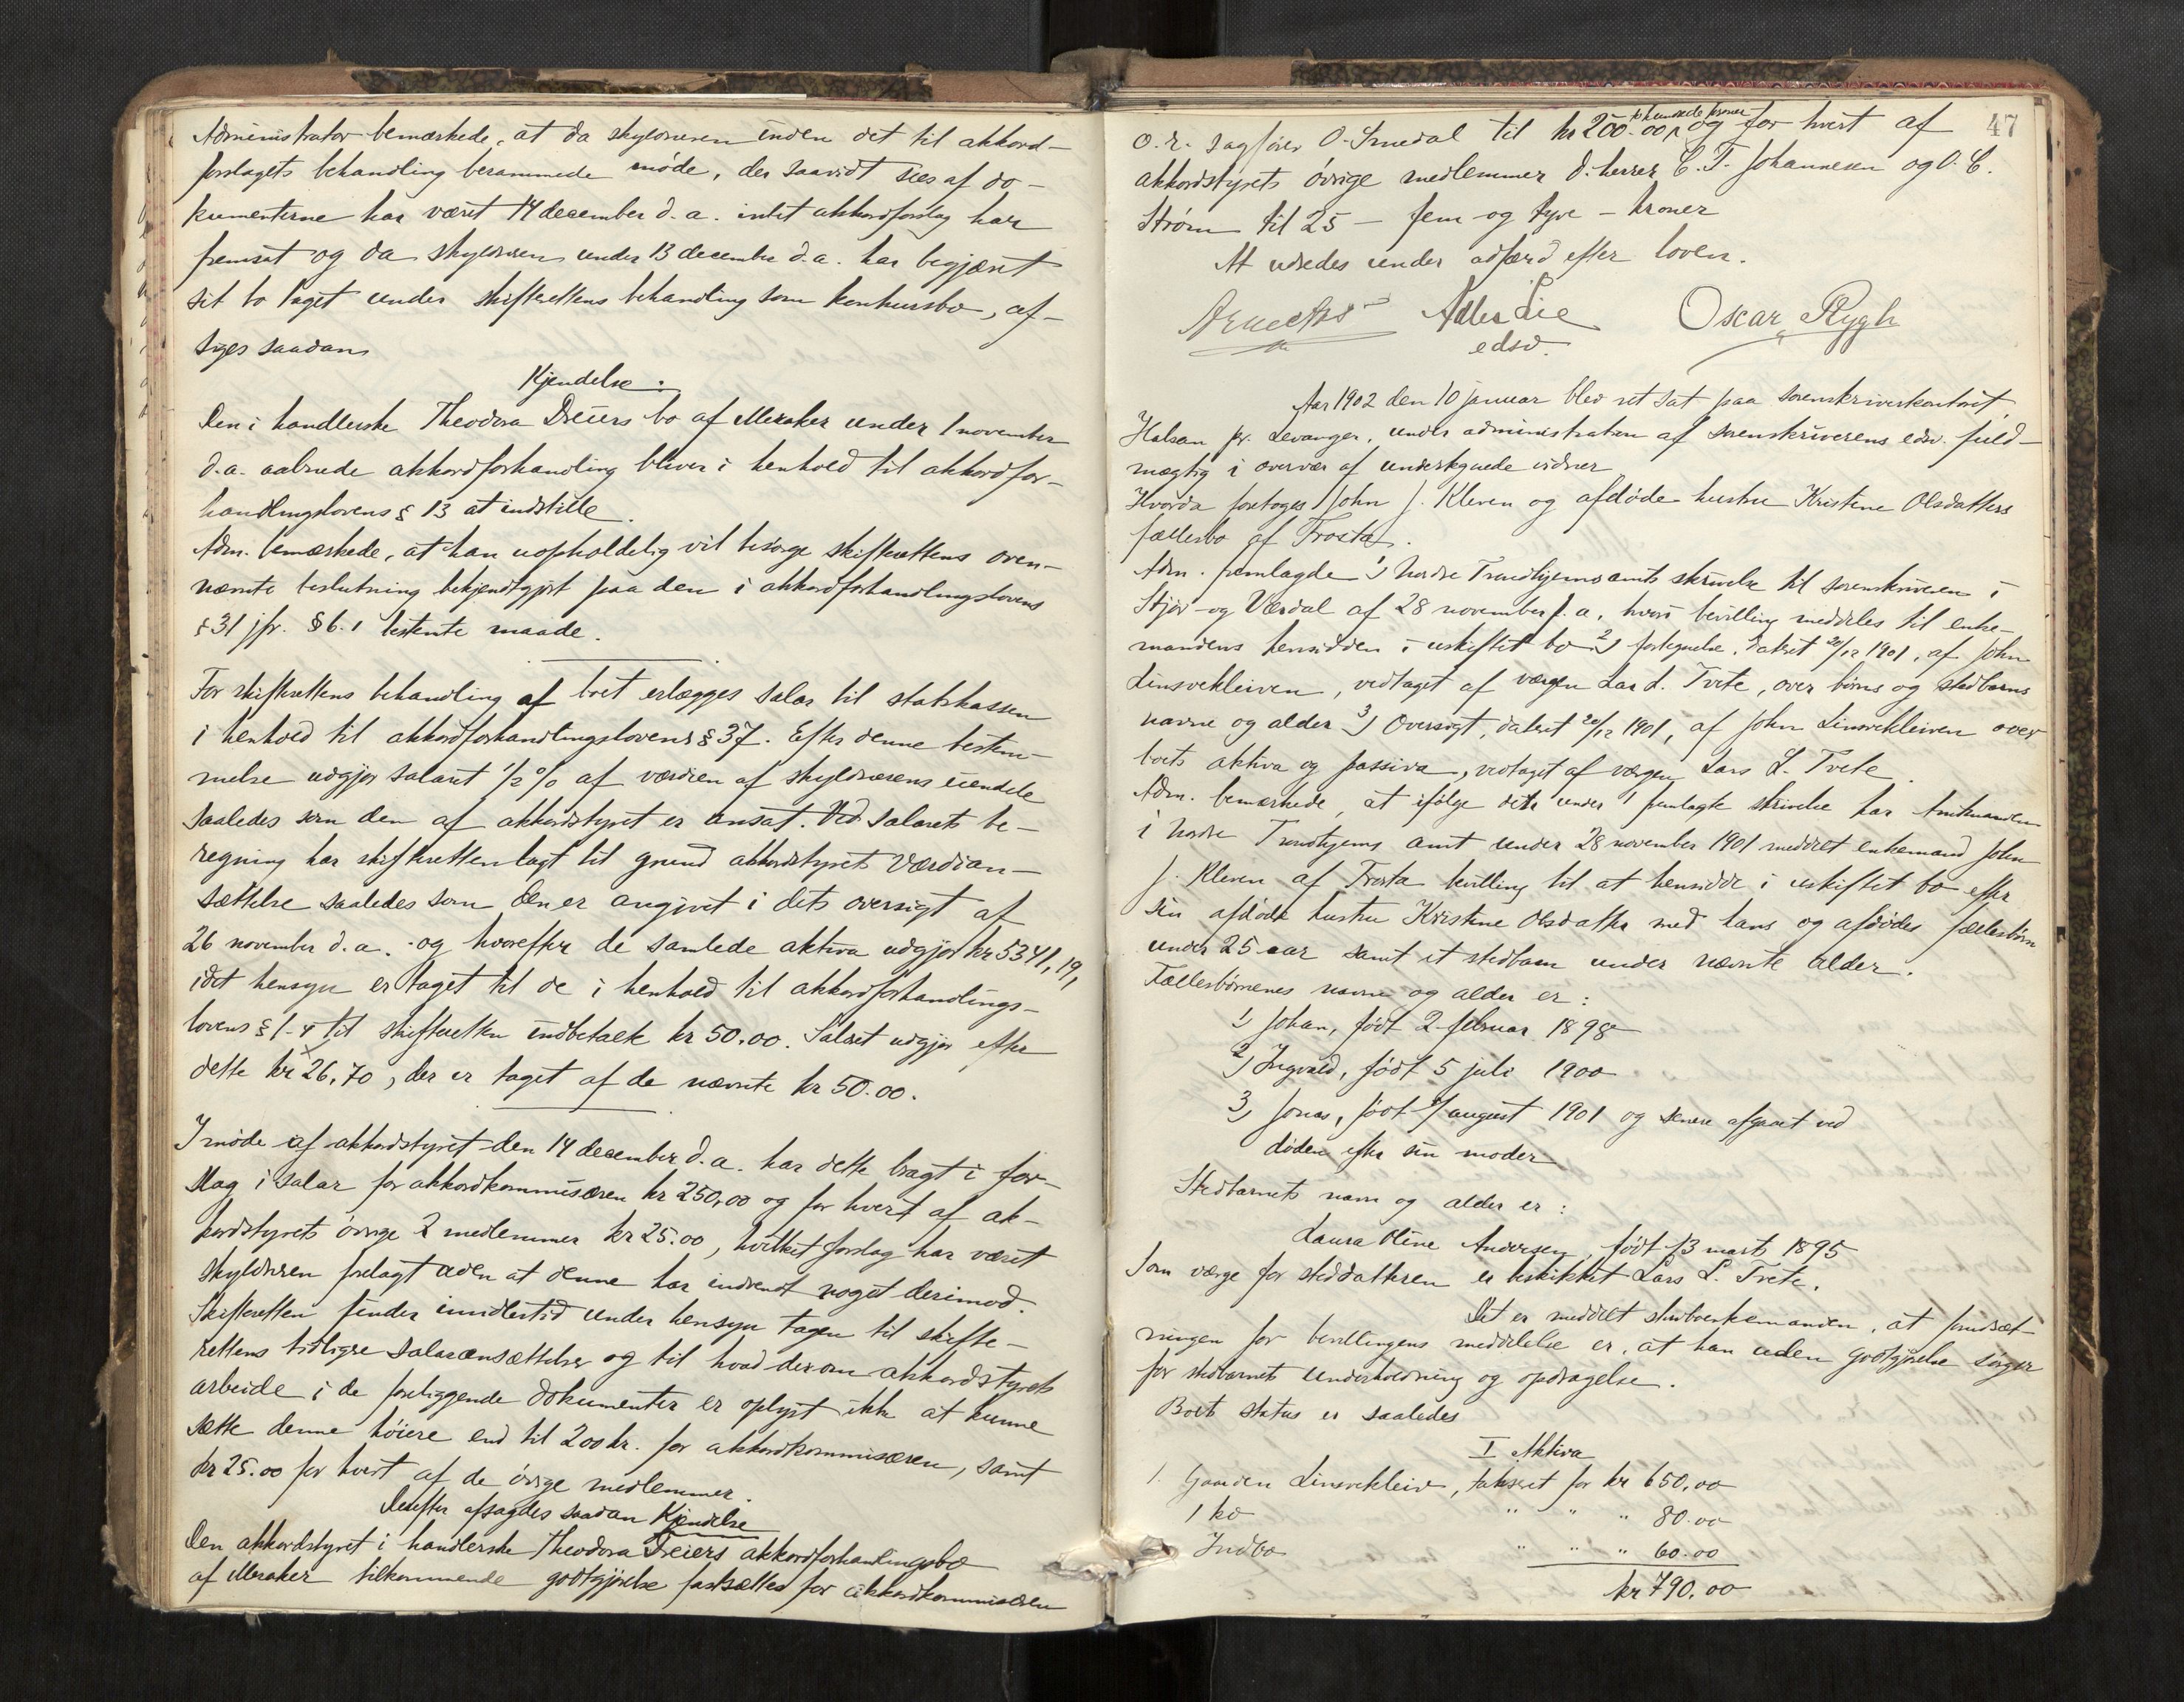 Administrator bemærkede, at da skyldneren inden det til akkord-
forslagets behandling berammede møde, der saavidt sees af do-
kumenterne har været 14 december d.a. intet akkordforslag har
fremsat og da skyldneren under 13 december d.a. har begjært
sit bo taget under skifterettens behandling som konkursbo, af-
siges saadan
Kjendelse.
Den i handlerske Theodora Dreiers bo af Meraker under 1 november
d.a. aabnede akkordforhandling bliver i henhold til akkordfor-
handlingslovens § 13 at indstille.
Adm. bemærkede, at han uopholdelig vil besørge skifterettens oven-
nævnte beslutning bekjendtgjort paa den i akkordforhandlingslovens
§ 31 jfr. § 6.1 bestemte maade.
For skifterettens behandling af boet erlægges salær til statskassen
i henhold til akkordforhandlingslovens § 37. Efter denne bestem-
melse udgjør salæret 1/2 % af værdien af skyldnerens eiendele
saaledes som den af akkordstyret er ansat. Ved salærets be-
regning har skifteretten lagt til grund akkordstyrets værdian-
sættelse saaledes som den er angivet i dets oversigt af
26 november d.a. og hvorefter de samlede aktiva udgjør kr 5341,19,
idet hensyn er taget til de i henhold til akkordforhandlings-
lovens § 1-4 til skifteretten indbetalte kr 50.00. Salæret udgjør efter
dette kr 26,70, der er taget af de nævnte kr 50.00.
I møde af akkordstyret den 14 december d.a. har dette bragt i for-
slag i salær for akkordkommisæren kr 250,00 og for hvert af ak-
kordstyrets øvrige 2 medlemmer kr 25.00, hvilket forslag har været
skyldneren forelagt uden at denne har indvendt noget derimod.
Skifteretten finder imidlertid under hensyn tagen til skifte-
rettens tidligere salæransættelser og til hvad der om akkordstyrets
arbeide i de foreliggende dokumenter er oplyst ikke at kunne
sætte denne høiere end til 200 kr. for akkordkommisæren, samt
kr 25.00 for hvert af de øvrige medlemmer.
Derefter afsagdes saadan Kjendelse
Den akkordstyret i handlerske Theodora Dreiers akkordforhandlingsbo
af Meraker tilkommende godtgjørelse fastsættes for akkordkommisæren
47
o.r. sagfører O. Smedal til kr 200.00 to hundrede kroner og for hvert af
akkordstyrets øvrige medlemmer d'herrer C. T. Johannesen og O. C.
Strøm til 25 - fem og tyve - kroner
At udredes under adfærd efter loven.
Lie Oscar Rygh
edsv.
Aar 1902 den 10 januar blev ret sat paa sorenskriverkontoret,
Halsan pr. Levanger, under administration af sorenskriverens edsv. fuld-
mægtig i overvær af undertegnede vidner
Hvorda foretoges John J. Kleven og afdøde hustru Kristine Olsdatters
fællesbo af Frosta.
Adm. fremlagde 1) Nordre Trondhjems amts skrivelse til sorenskriveren i
Stjør- og Værdal af 28 november f.a., hvori bevilling meddeles til enke-
mandens hensidden i uskiftet bo 2) fortegnelse, dateret 20/12 1901, af John
Linsvekleiven, vedtaget af værgen Lars L. Tvete, over børns og stedbarns
navne og alder 3) Oversigt, dateret 20/12 1901, af John Linsvekleiven over
boets aktiva og passiva, vedtaget af værgen Lars L. Tvete.
Adm. bemærkede, at ifølge dette under 1 fremlagte skrivelse har Amtmanden
i Nordre Trondhjems amt under 28 november 1901 meddelt enkemand John
J. Kleven af Frosta bevilling til at hensidde i uskiftet bo efter
sin afdøde hustru Kristine Olsdatter med hans og afdødes fællesbørn
under 25 aar samt et stedbarn under nævnte alder.
Fællesbørnenes navne og alder er:
1) Johan, født 2 februar 1898
2) Ingvald, født 5 juli 1900
3) Jonas, født august 1901 og senere afgaaet ved
døden efter sin moder
Stedbarnets navn og alder er:
Laura Oline Andersen, født 13 marts 1895
Som værge for steddatteren er beskikket Lars L. Tvete.
Det er meddelt enkemanden, at forudsæt-
ningen for bevillingens meddelelse er, at han uden godtgjørelse sørger
for stedbarnets underholdning og opdragelse.
Boets status er saaledes
I Aktiva
1. Gaarden Linsvekleiv, takseret for kr 650,00
1 ko " " " 80.00
Indbo " " " 60.00
kr 790.00